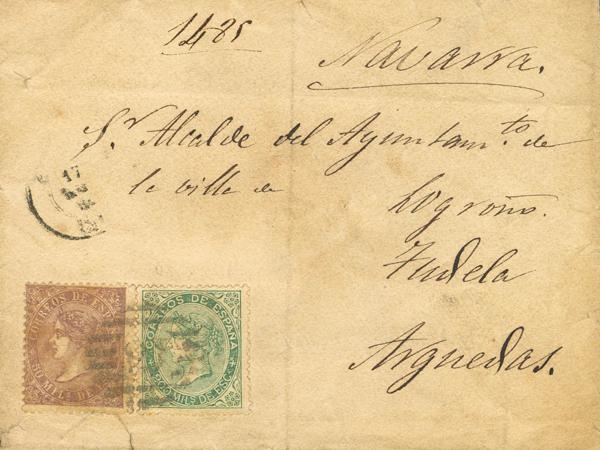 1485
Navarra.
Sr. Alcalde del Ayuntamto. de
la villa de
Logroño.
Tudela
Arguedas.
17
CORREOS DE ESP
50 MILS DE
CORREOS DE ESPAÑA
200 MILS DE ESCO